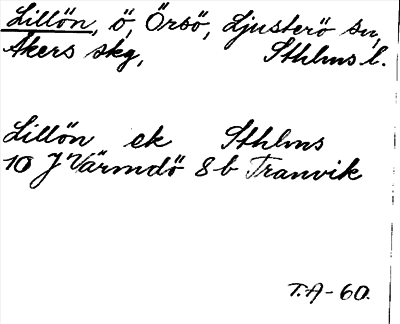 Lillön, ö, Örsö, Ljusterö sn,
Åkers skg, Sthlms l.
Lillön ek Sthlms
10 J Värmdö 8 b Tranvik
T.A-60.